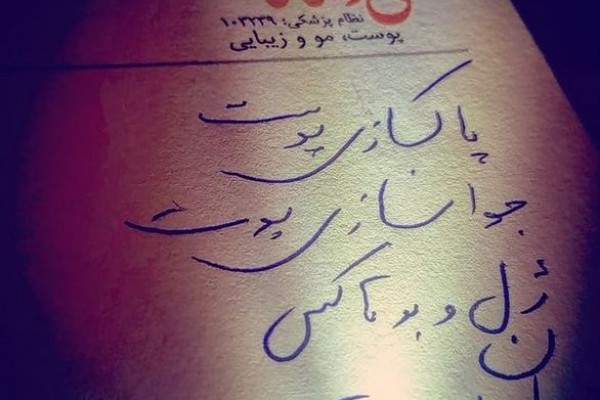 نظام پزشکی: ۱۰۳۲۳۹
پوست، مو و زیبایی
پاکسازی پوست
جوانسازی پوست
ژل و بوتاکس